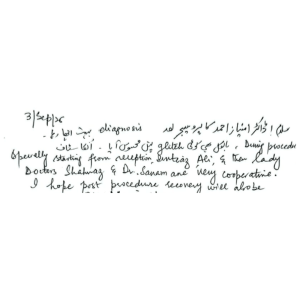 3/Sep/26
سلام! ڈاکٹر امتیاز احمد کا پروسیجر اور diagnosis بہت اچھا رہا۔
glitch نہیں محسوس آیا۔ During procedure
Specially starting from reception, Imtiaz Ali, & then lady
Doctors Shahnaz & Dr. Sanam are very cooperative.
I hope post procedure recovery will also be